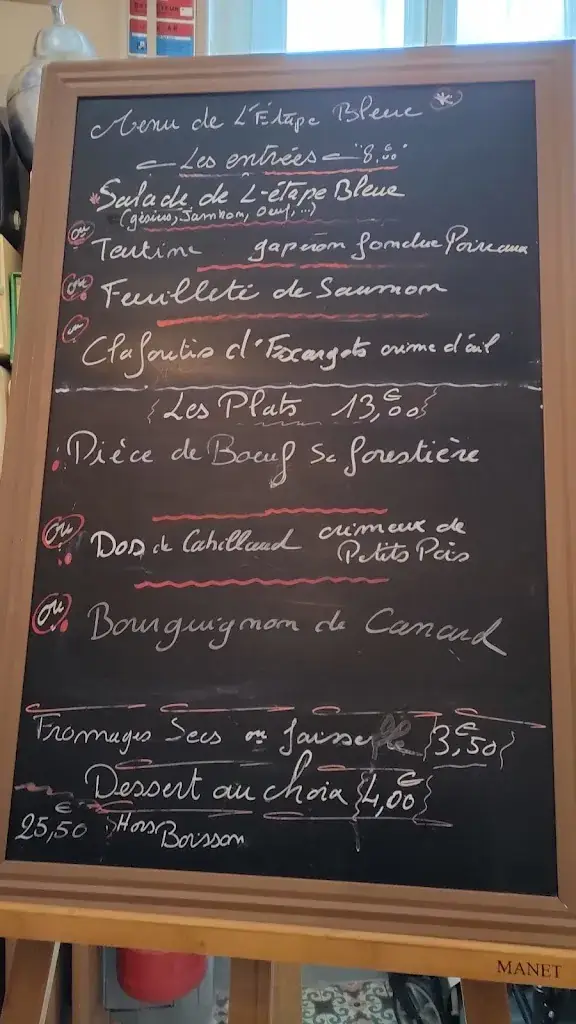 Menu de L'Étape Bleue *
Les entrées 8,€00
* Salade de L'étape Bleue
(gésiers, Jambon, Oeuf, ...)
ou
Tartine gaperon fondue Poireaux
ou
Feuilleté de Saumon
ou
Clafoutis d'Escargots crème d'ail
{Les Plats 13,€00}
Pièce de Boeuf Sc forestière
ou
Dos de Cabillaud crémeux de
Petits Pois
ou
Bourguignon de Canard
Fromages Secs ou faisselle {3,€50}
Dessert au choix {4,00€}
25,50€ Hors
Boisson
MANET